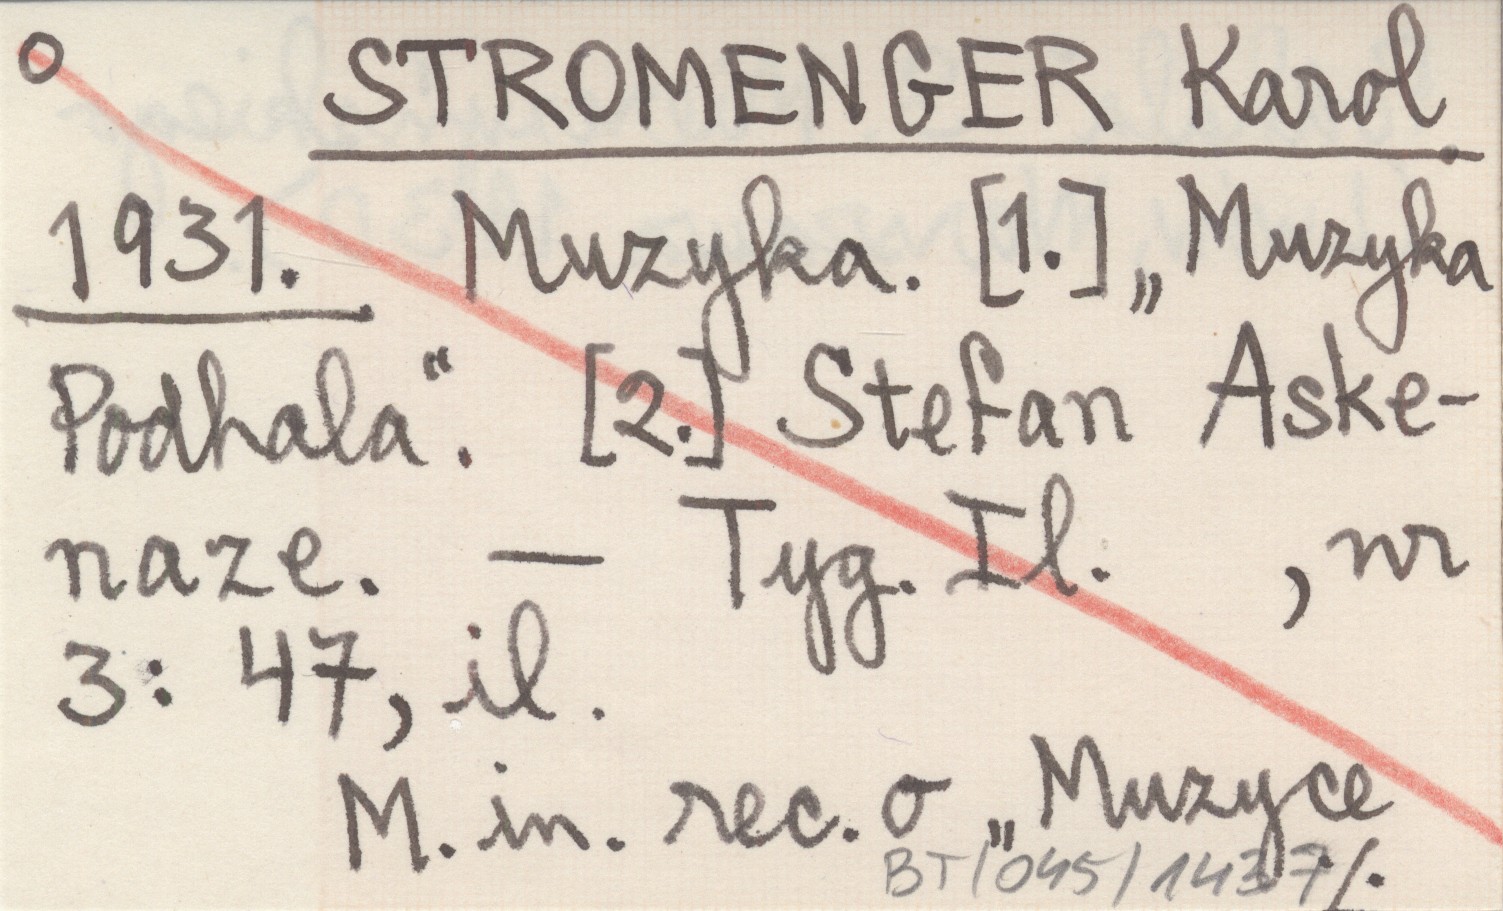 STROMENGER Karol
1931. Muzyka. [1.] „Muzyka
Podhala“. [2.] Stefan Aske-
naze. — Tyg. Il. , nr
3: 47, il.
M. in. rec. o „Muzyce
BT/045/1437 /.